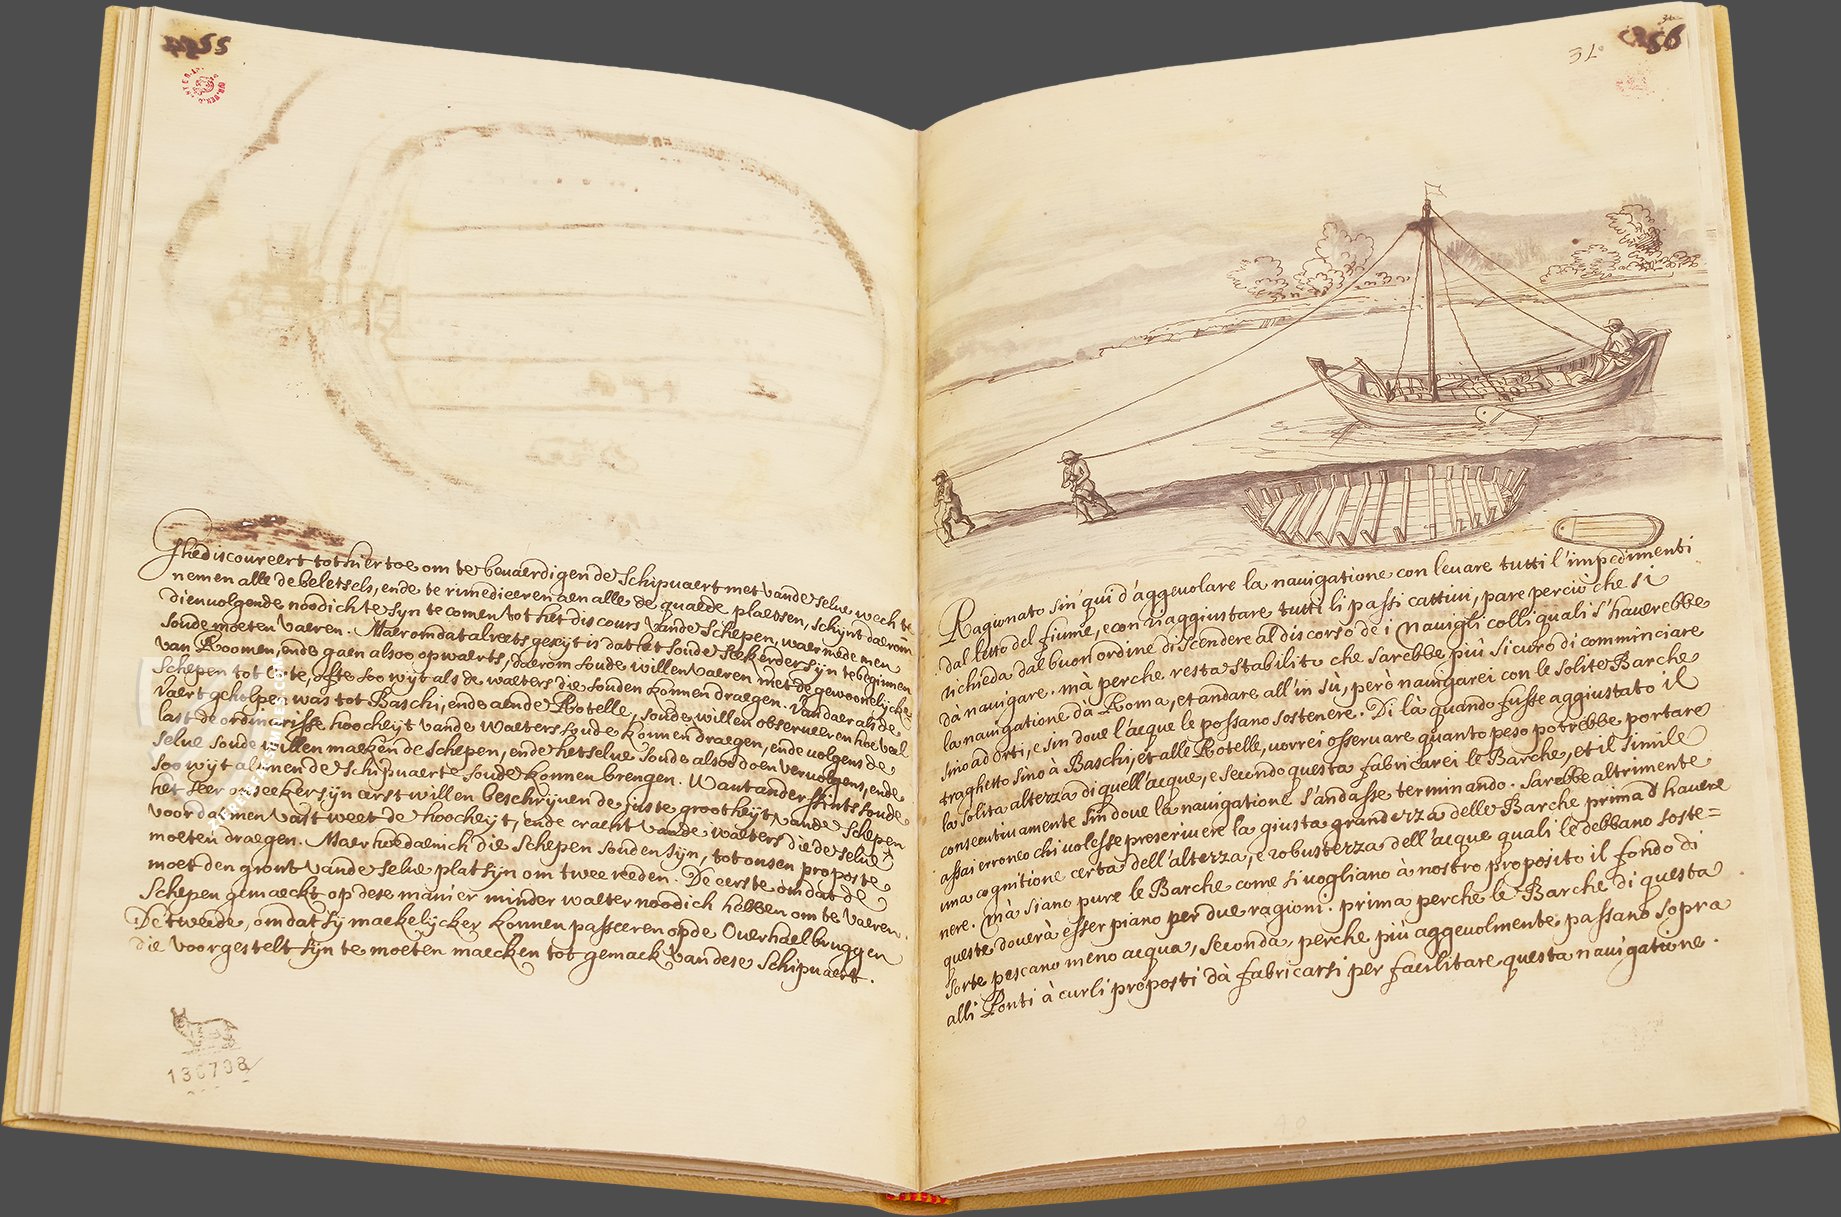 55
Ghediscoureert tot hier toe om te bevaerdigen de Schipvaert met vande selve wech te
nemen alle de beletsels, ende te rimedieeren aen alle de quaede plaetsen, schijnt daerom
dienvolgende noodich te syn te comen tot het discours vande Schepen, waer mede men
soude moeten vaeren. Maer omdat alreets geseyt is dat het soude seekerder syn te beginnen
van Roomen, ende gaen alsoo opwaerts, daerom soude willen vaeren met de gewoonelycke
Schepen tot Orte, ofte soo wyt als de waeters die souden konnen draegen. Van daer als de
vaert geholpen was tot Baschi, ende aende Rotelle, soude willen observeeren hoe veel
last de ordinarisse hoocheyt vande Waeters soude konnen draegen, ende volgens de
selve soude willen maeken de Schepen, ende hetselve soude alsoo doen vervolgens, ende
soo wyt als men de Schipvaert soude konnen brengen. Want anderssints soude
het seer onseeker syn eerst willen beschryven de juste grootheyt vande Schepen
voordat men vast weet de hoocheyt, ende cracht vande waeters die de selve
moeten draegen. Maer hoedaenich die Schepen souden syn, tot onsen proposte
moet den gront vande selve plat syn om twee reeden. De eerste omdat de
Schepen gemaeckt op dese manier minder waeter noodich hebben om te vaeren.
De tweede, omdat sy maekelycker konnen passeeren op de Overhaelbruggen
die voorgestelt syn te moeten maecken tot gemack van dese Schipvaert.
130708
56
31
Ragionato sin' qui d'aggevolare la navigatione con levare tutti l'impedimenti
dal letto del fiume, e con riaggiustare tutti li passi cattivi, pare perciò che si
richieda dal buon ordine di scendere al discorso de i Navigli colli quali s'haverebbe
dà navigare. mà perche resta stabilito che sarebbe più sicuro di comminciare
la navigatione dà Roma, et andare all'in sù, però navigarei con le solite Barche
sino ad Orti, e sin dove l'acque le possano sostenere. Di là quando fusse aggiustato il
traghetto sino à Baschi, et alle Rotelle, vorrei osservare quanto peso potrebbe portare
la solita altezza di quell'acque, e secondo questa fabricarei le Barche, et il simile
consecutivamente sin dove la navigatione s'andasse terminando. Sarebbe altrimente
assai erroneo chi volesse prescrivere la giusta grandezza delle Barche prima d'havere
una cognitione certa dell'altezza, e robustezza dell'acque quali le debbano soste=
nere. Mà siano pure le Barche come si vogliano à nostro proposito il fondo di
queste doverà esser piano per due ragioni. prima perche le Barche di questa
sorte pescano meno acqua, Seconda, perche più aggevolmente passano sopra
alli Ponti à curli proposti dà fabricarsi per facilitare questa navigatione.